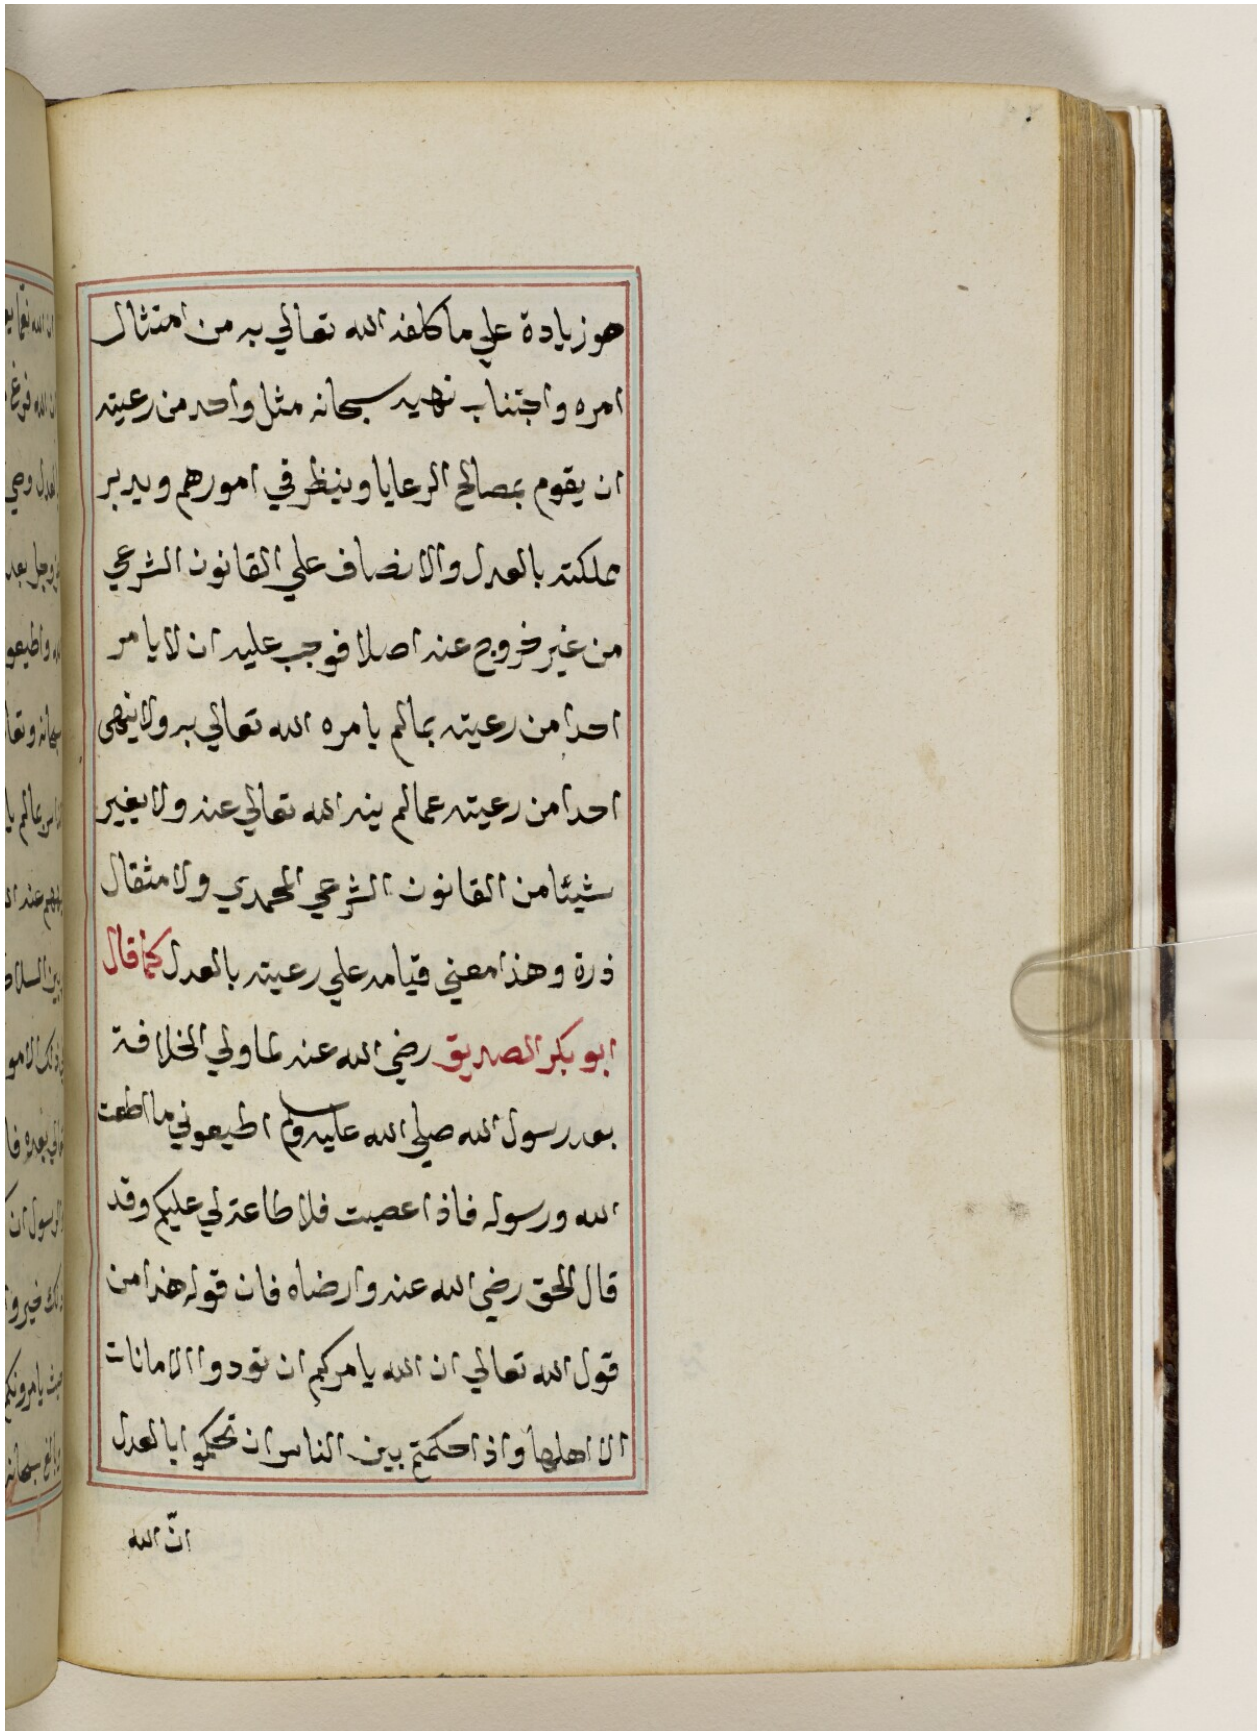 هو زيادة علي ما كلفه الله تعالي به من امتثال
امره واجتناب نهيه سبحانه مثل واحد من رعيته
ان يقوم بمصالح الرعايا وينظر في امورهم ويدبر
مملكته بالعدل والانصاف علي القانون الشرعي
من غير خروج عنه اصلا فوجب عليه ان لا يامر
احدا من رعيته بما لم يامره الله تعالي به ولا ينهى
احدا من رعيته عما لم ينه الله تعالي عنه ولا يغير
شيئا من القانون الشرعي المحمدي ولا مثقال
ذرة وهذا معني قيامه علي رعيته بالعدل كما قال
ابو بكر الصديق رضي الله عنه لما ولي الخلافة
بعد رسول الله صلي الله عليه وسلم اطيعوني ما اطعت
الله ورسوله فاذا عصيت فلا طاعة لي عليكم وقد
قال الحق رضي الله عنه وارضاه فان قوله هذا من
قول الله تعالي ان الله يامركم ان تودوا الامانات
الا اهلها واذا حكمتم بين الناس ان تحكموا بالعدل
انّ الله